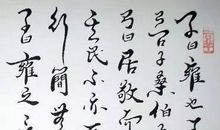 子曰雍也
子桑伯
曰居敬而
其民不亦
行簡無
子曰雍之